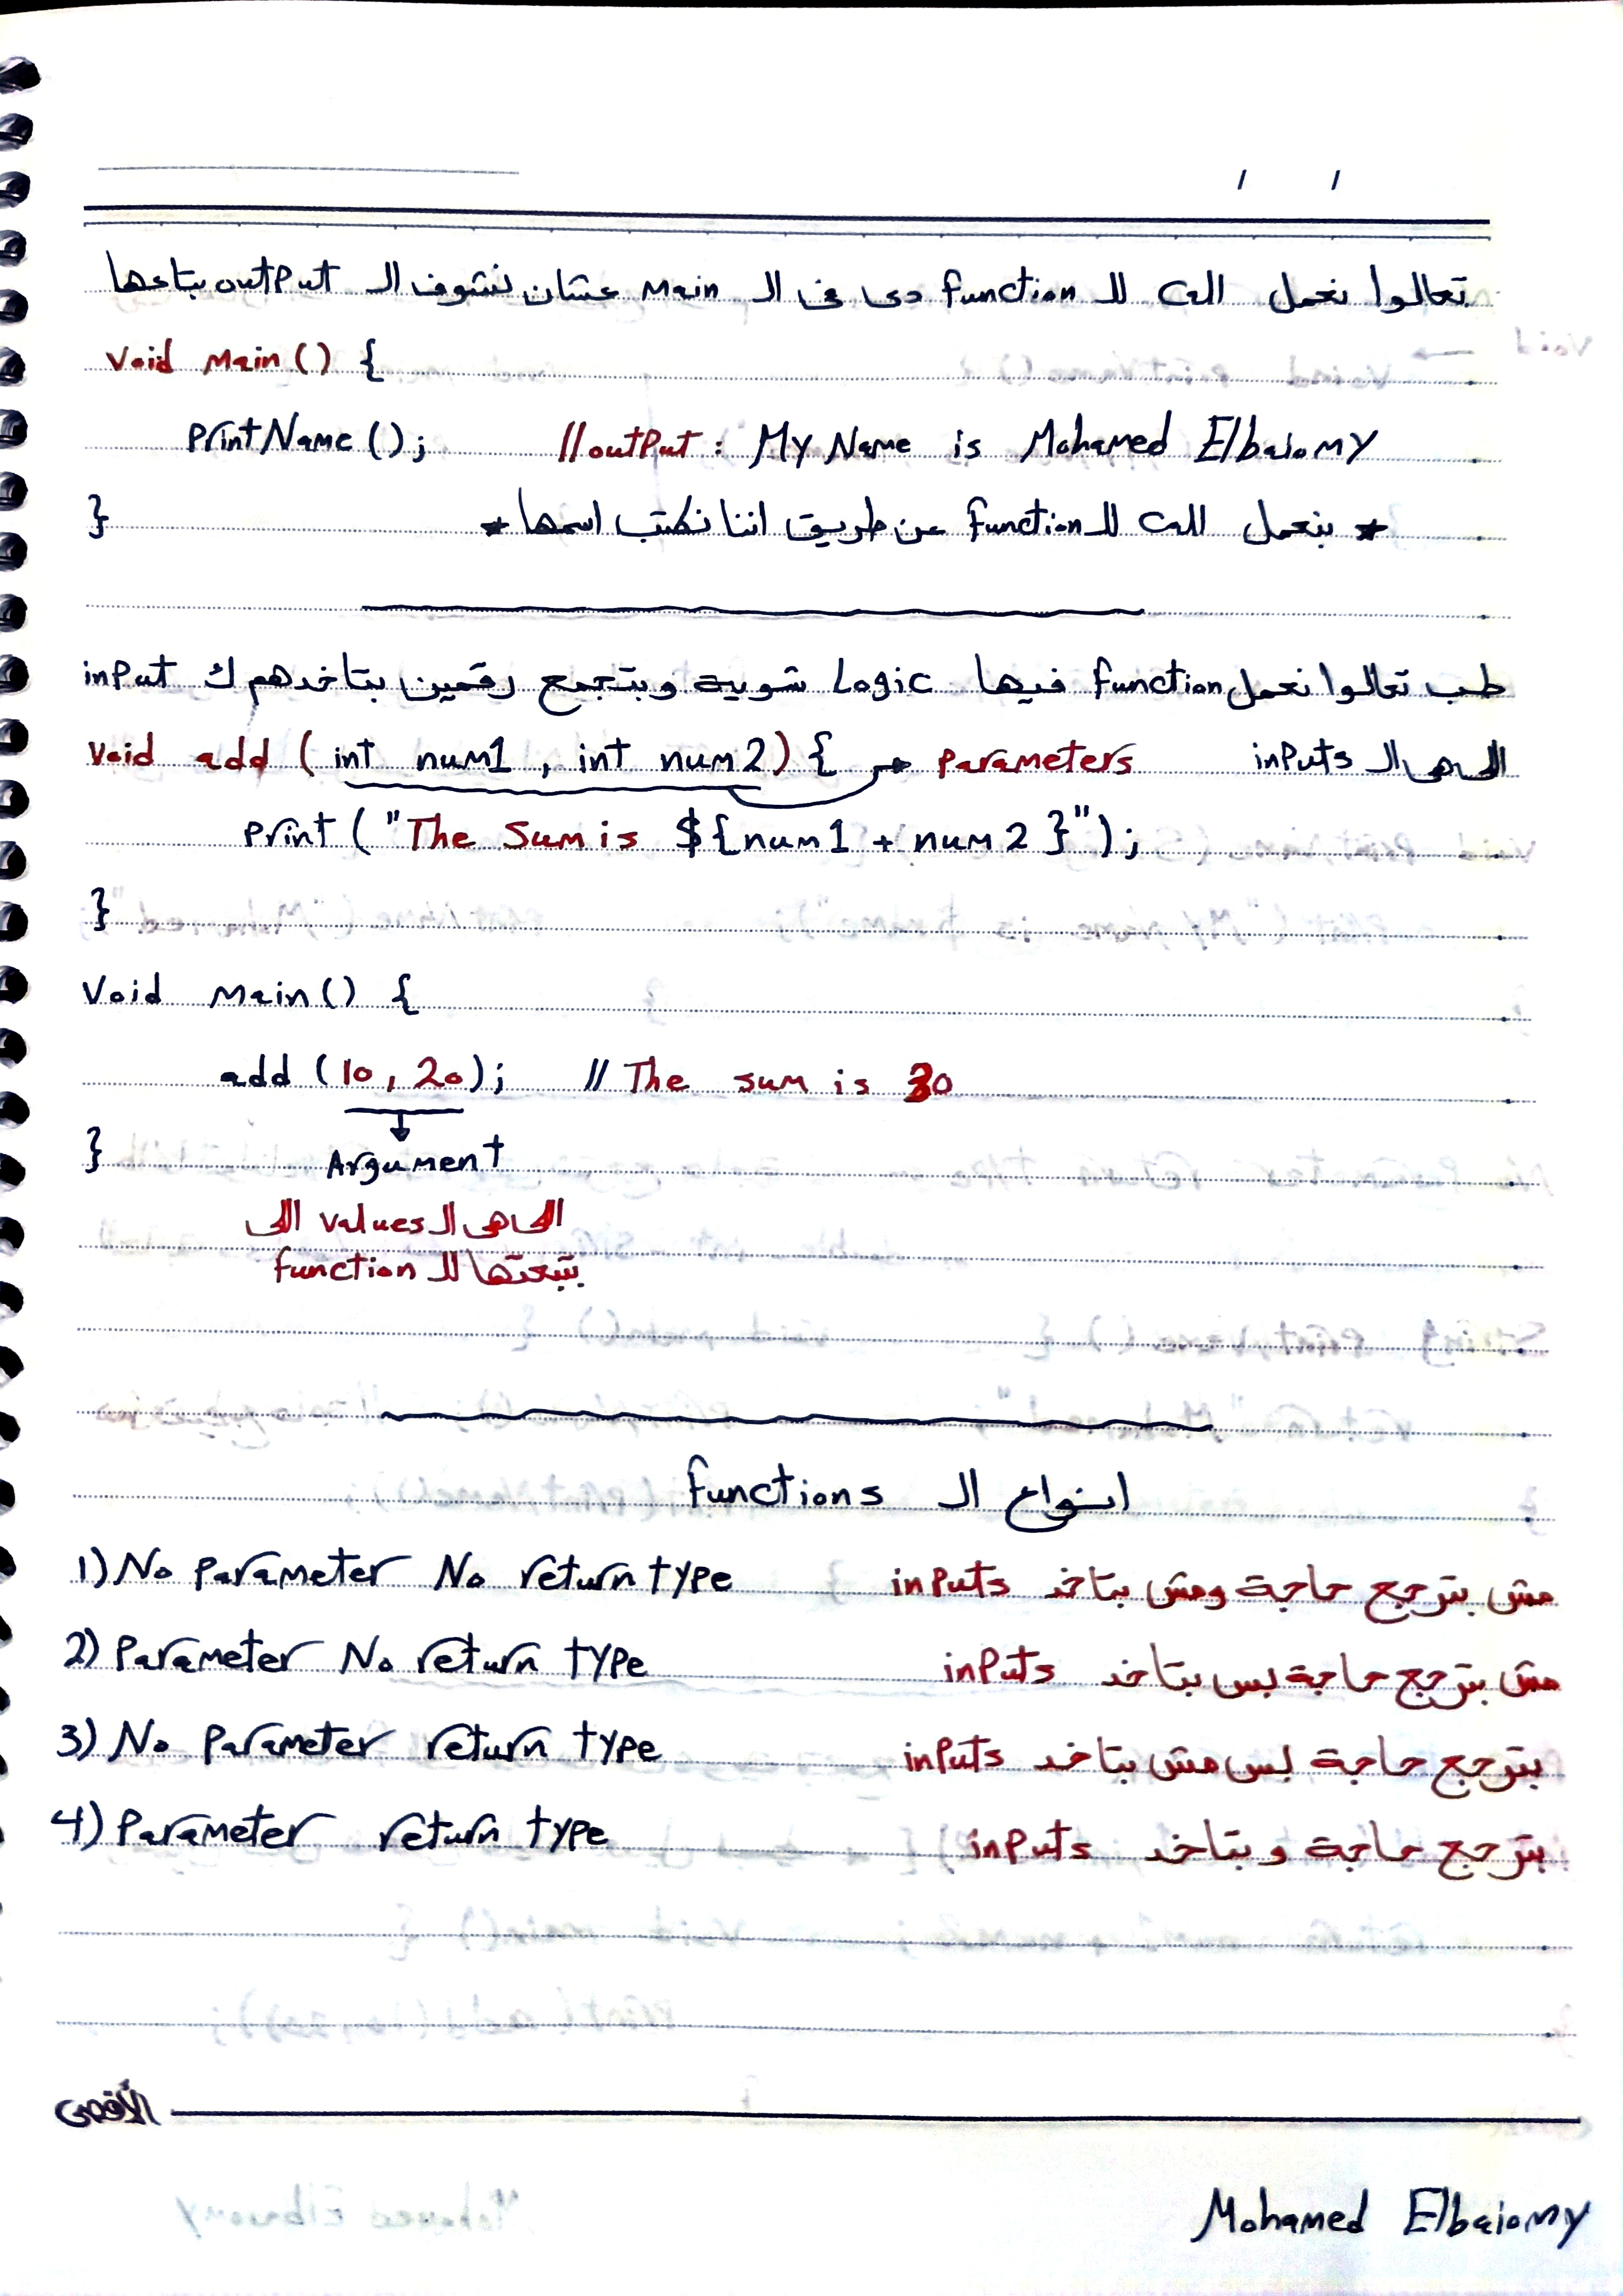 / /
تعالوا نعمل call لل function دى فى ال main عشان نشوف ال output بتاعها
Void main () {
printName (); //output : My Name is Mohamed Elbaiomy
} * بنعمل call لل function عن طريق اننا نكتب اسمها *
طب تعالوا نعمل function فيها Logic شوية وبتجمع رقمين بتاخدهم ك input
Void add ( int num1 , int num2 ) { → parameters اللى هى ال inputs
print ( "The Sum is ${num1 + num2 }" );
}
Void main () {
add (10, 20); // The sum is 30
} Argument
اللى هى ال values اللى
بتبعتها لل function
انواع ال functions
1) No parameter No return type مش بترجع حاجة ومش بتاخد inputs
2) parameter No return type مش بترجع حاجة بس بتاخد inputs
3) No parameter return type بترجع حاجة بس مش بتاخد inputs
4) parameter return type بترجع حاجة وبتاخد inputs
الأقصى
Mohamed Elbaiomy